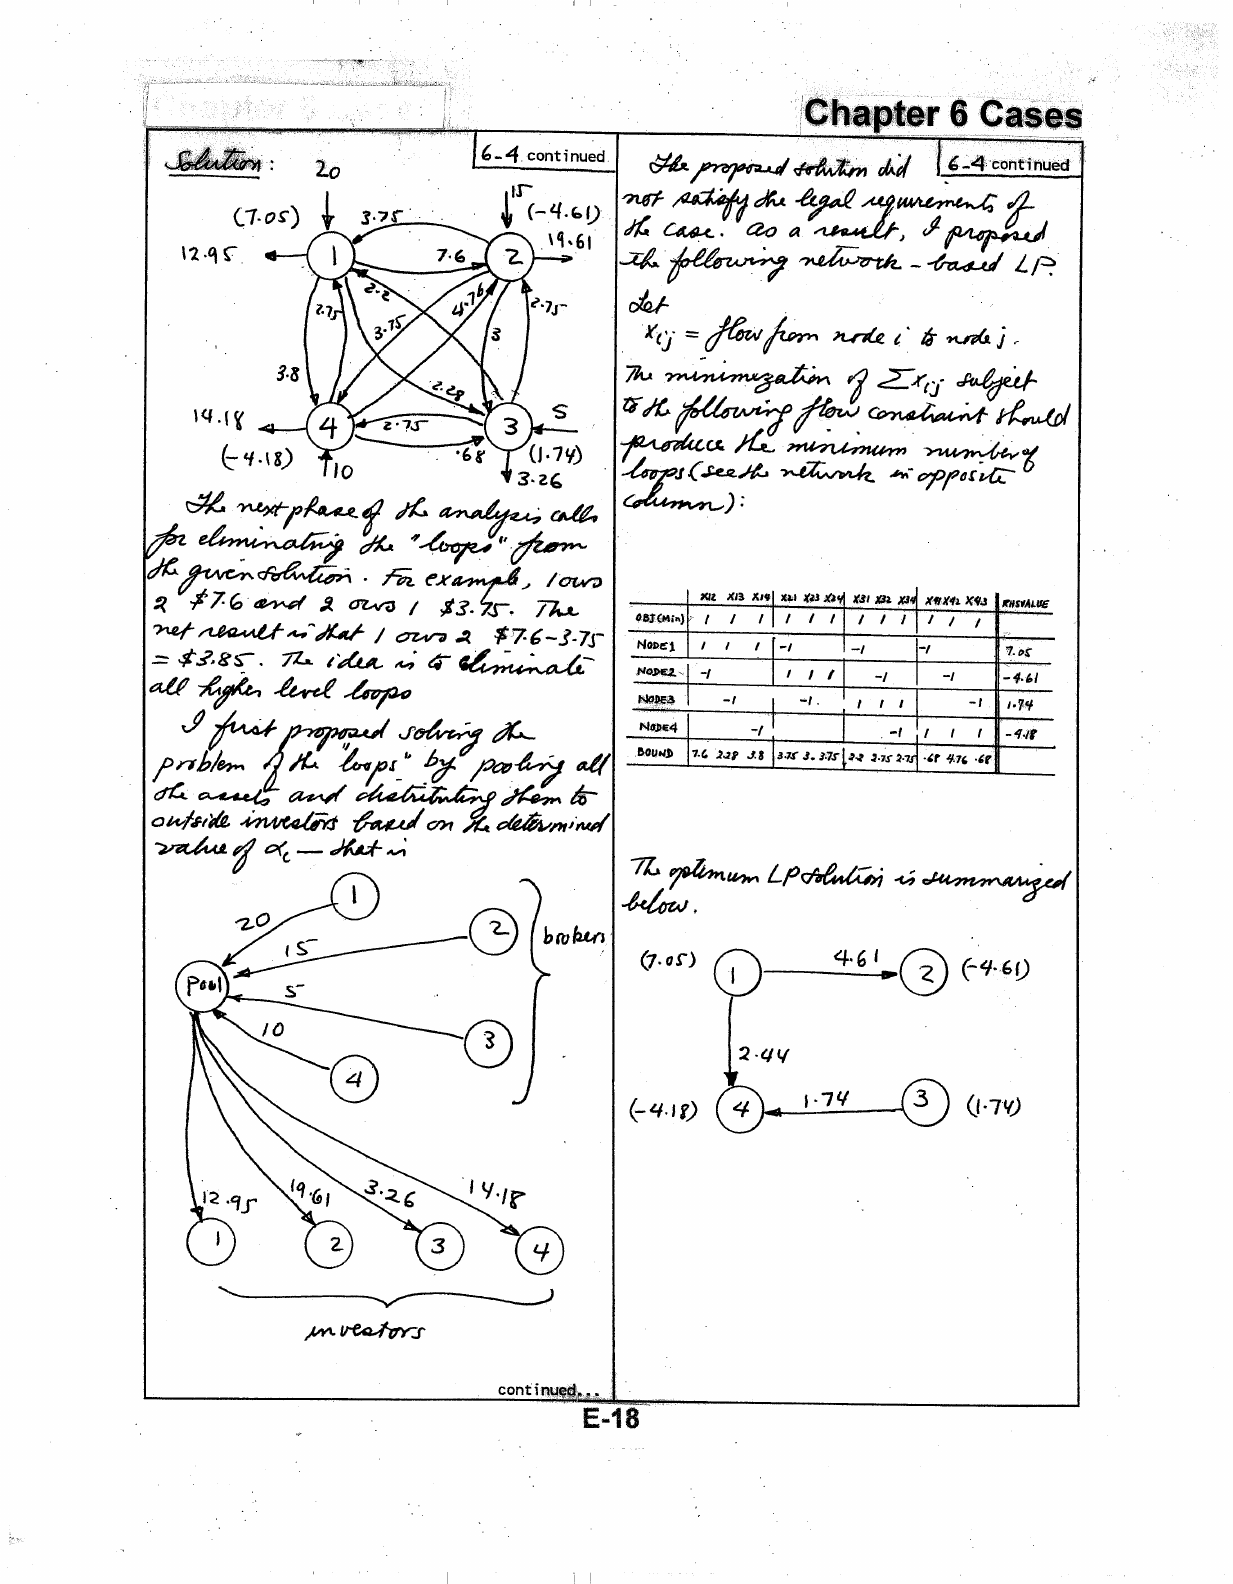 Chapter 6 Cases
6-4 continued
Solution:
20
15
(7.05)
3.75
(-4.61)
12.95
1
7.6
2
19.61
2.2
4.76
2.75
2.75
3.75
3
3.8
2.28
14.18
4
2.75
3
5
(-4.18)
10
.68
(1.74)
3.26
The next phase of the analysis calls
for eliminating the "loops" from
the given solution. For example, 1 ows
2 $7.6 and 2 ows 1 $3.75. The
net result is that 1 ows 2 $7.6-3.75
= $3.85. The idea is to eliminate
all higher level loops
I first proposed solving the
problem of the "loops" by pooling all
the assets and distributing them to
outside investors based on the determined
value of αi — that is
1
20
2
15
brokers
Pool
5
10
3
4
12.95
19.61
3.26
14.18
1
2
3
4
investors
continued...
6-4 continued
The proposed solution did
not satisfy the legal requirements of
the case. As a result, I proposed
the following network-based LP.
Let
xij = flow from node i to node j.
The minimization of Σxij subject
to the following flow constraint should
produce the minimum number of
loops (see the network in opposite
column):
X12 X13 X14 X21 X23 X24 X31 X32 X34 X41 X42 X43 RHSVALUE
OBJ(Min) 1 1 1 1 1 1 1 1 1 1 1 1
NODE1 1 1 1 -1 -1 -1 7.05
NODE2 -1 1 1 1 -1 -1 -4.61
NODE3 -1 -1 1 1 1 -1 1.74
NODE4 -1 -1 1 1 1 -4.18
BOUND 7.6 2.28 3.8 3.75 3. 3.75 2.2 2.75 2.75 .68 4.76 .68
The optimum LP solution is summarized
below.
(7.05)
1
4.61
2
(-4.61)
2.44
(-4.18)
4
1.74
3
(1.74)
E-18